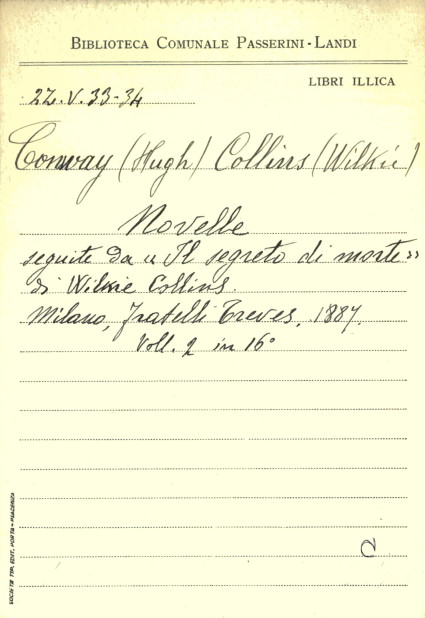 BIBLIOTECA COMUNALE PASSERINI-LANDI
LIBRI ILLICA
2Z.V.33-34
Conway (Hugh) Collins (Wilkie)
Novelle
seguite da « Il segreto di morte »
di Wilkie Collins.
Milano, Fratelli Treves, 1887.
Voll. 2 in 16°
2
SOCIETÀ TIP. EDIT. PORTA - PIACENZA